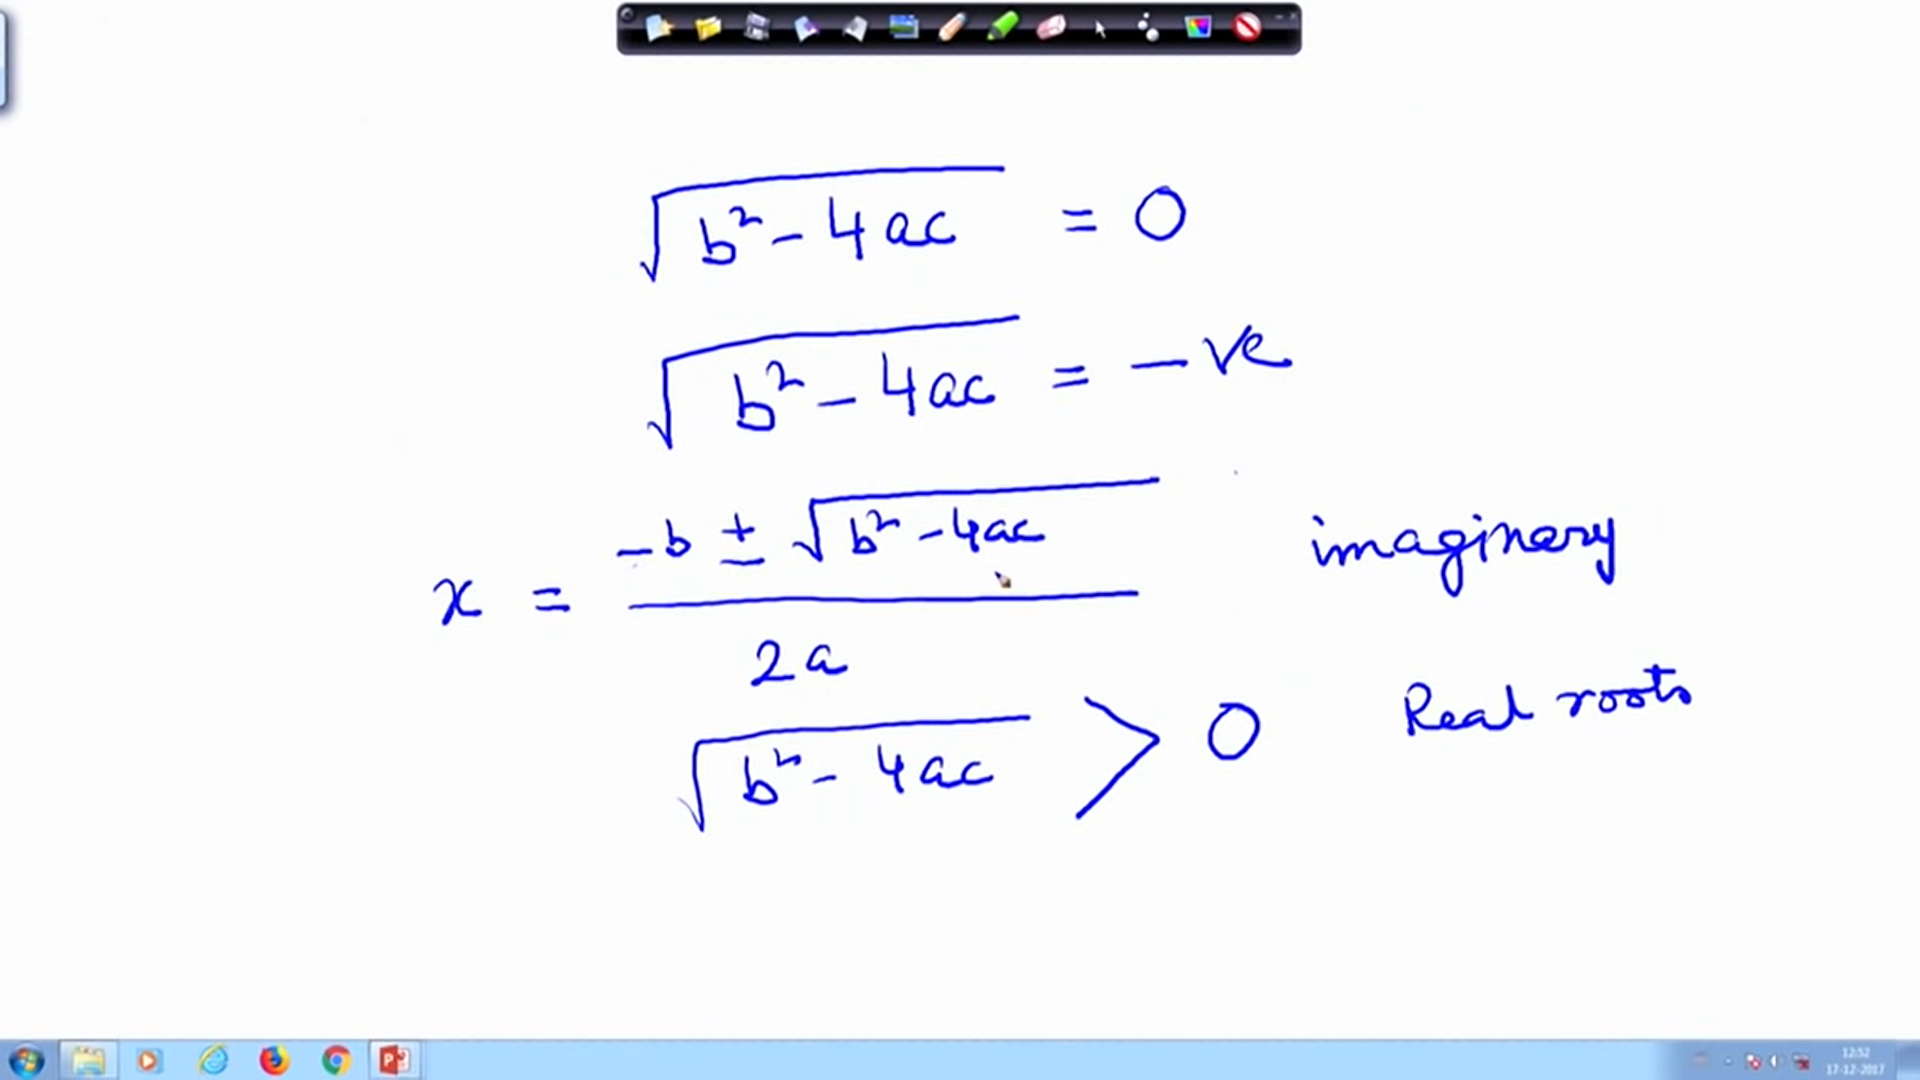 √(b² - 4ac) = 0
√(b² - 4ac) = - ve
x = (-b ± √(b² - 4ac)) / 2a
imaginary
√(b² - 4ac) > 0
Real roots
12:52
17-12-2017